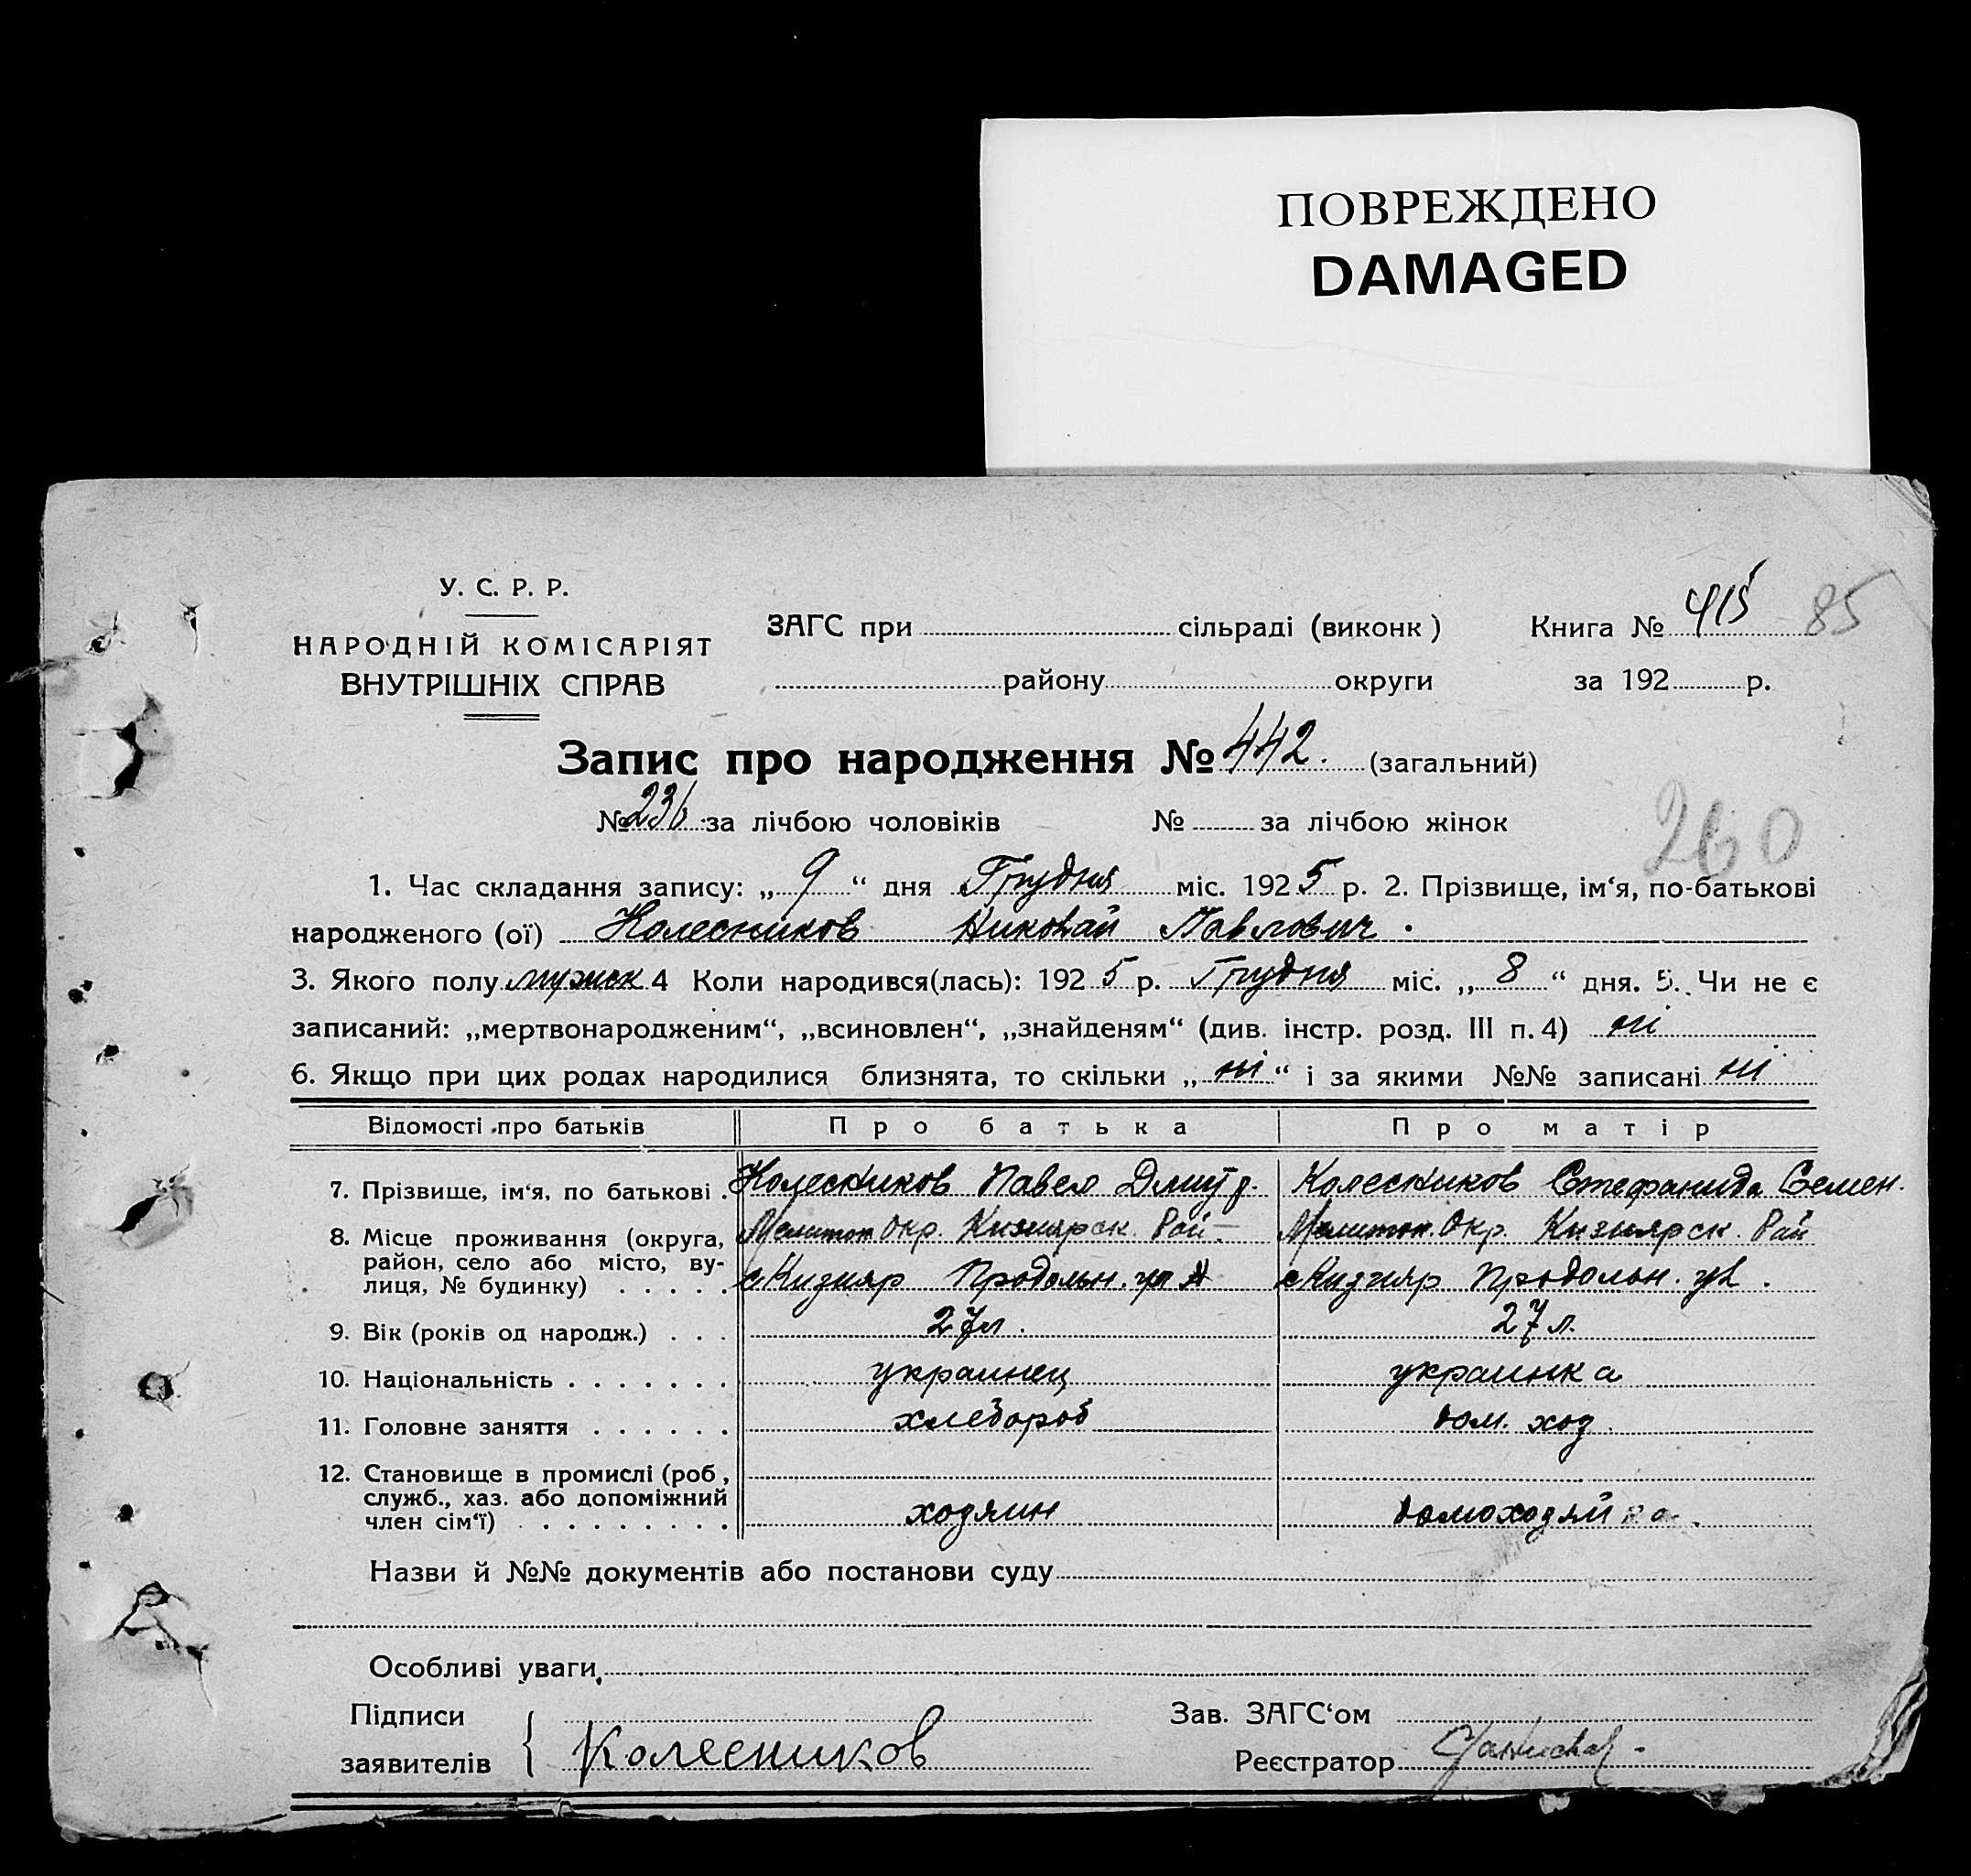 ПОВРЕЖДЕНО
DAMAGED
У. С. Р. Р.
НАРОДНІЙ КОМІСАРІЯТ
ВНУТРІШНІХ СПРАВ
ЗАГС при сільраді (виконк)
Книга № 415 85
району округи
за 192 р.
Запис про народження № 442. (загальний)
№ 236 за лічбою чоловіків № за лічбою жінок
260
1. Час складання запису: „ 9 “ дня Грудня міс. 1925 р. 2. Прізвище, ім‘я, по-батькові
народженого (ої) Колесников Николай Павлович.
3. Якого полу мужск 4 Коли народився(лась): 1925 р. Грудня міс. „ 8 “ дня. 5. Чи не є
записаний: „мертвонародженим“, „всиновлен“, „знайденям“ (див. інстр. розд. III п. 4) ні
6. Якщо при цих родах народилися близнята, то скільки „ ні “ і за якими №№ записані ні
Відомості про батьків Про батька Про матір
7. Прізвище, ім‘я, по батькові . Колесников Павел Дмитр. Колесников Стефанида Семен.
8. Місце проживання (округа, Мелитоп Окр. Кизиярск. Рай- Мелитоп. Окр. Кизиярск. Рай
район, село або місто, ву-
лиця, № будинку) . . . . . с Кизияр Продольн. ул с Кизияр Продольн. ул.
9. Вік (років од народж.) . . . 27 л. 27 л.
10. Національність . . . . . . . украинец украинка
11. Головне заняття . . . . . . хлебороб дом. хоз.
12. Становище в промислі (роб,
служб., хаз. або допоміжний
член сім‘ї) . . . . . . . . хозяин домохозяйка.
Назви й №№ документів або постанови суду
Особливі уваги
Підписи
заявителів { Колесников
Зав. ЗАГС‘ом
Реєстратор